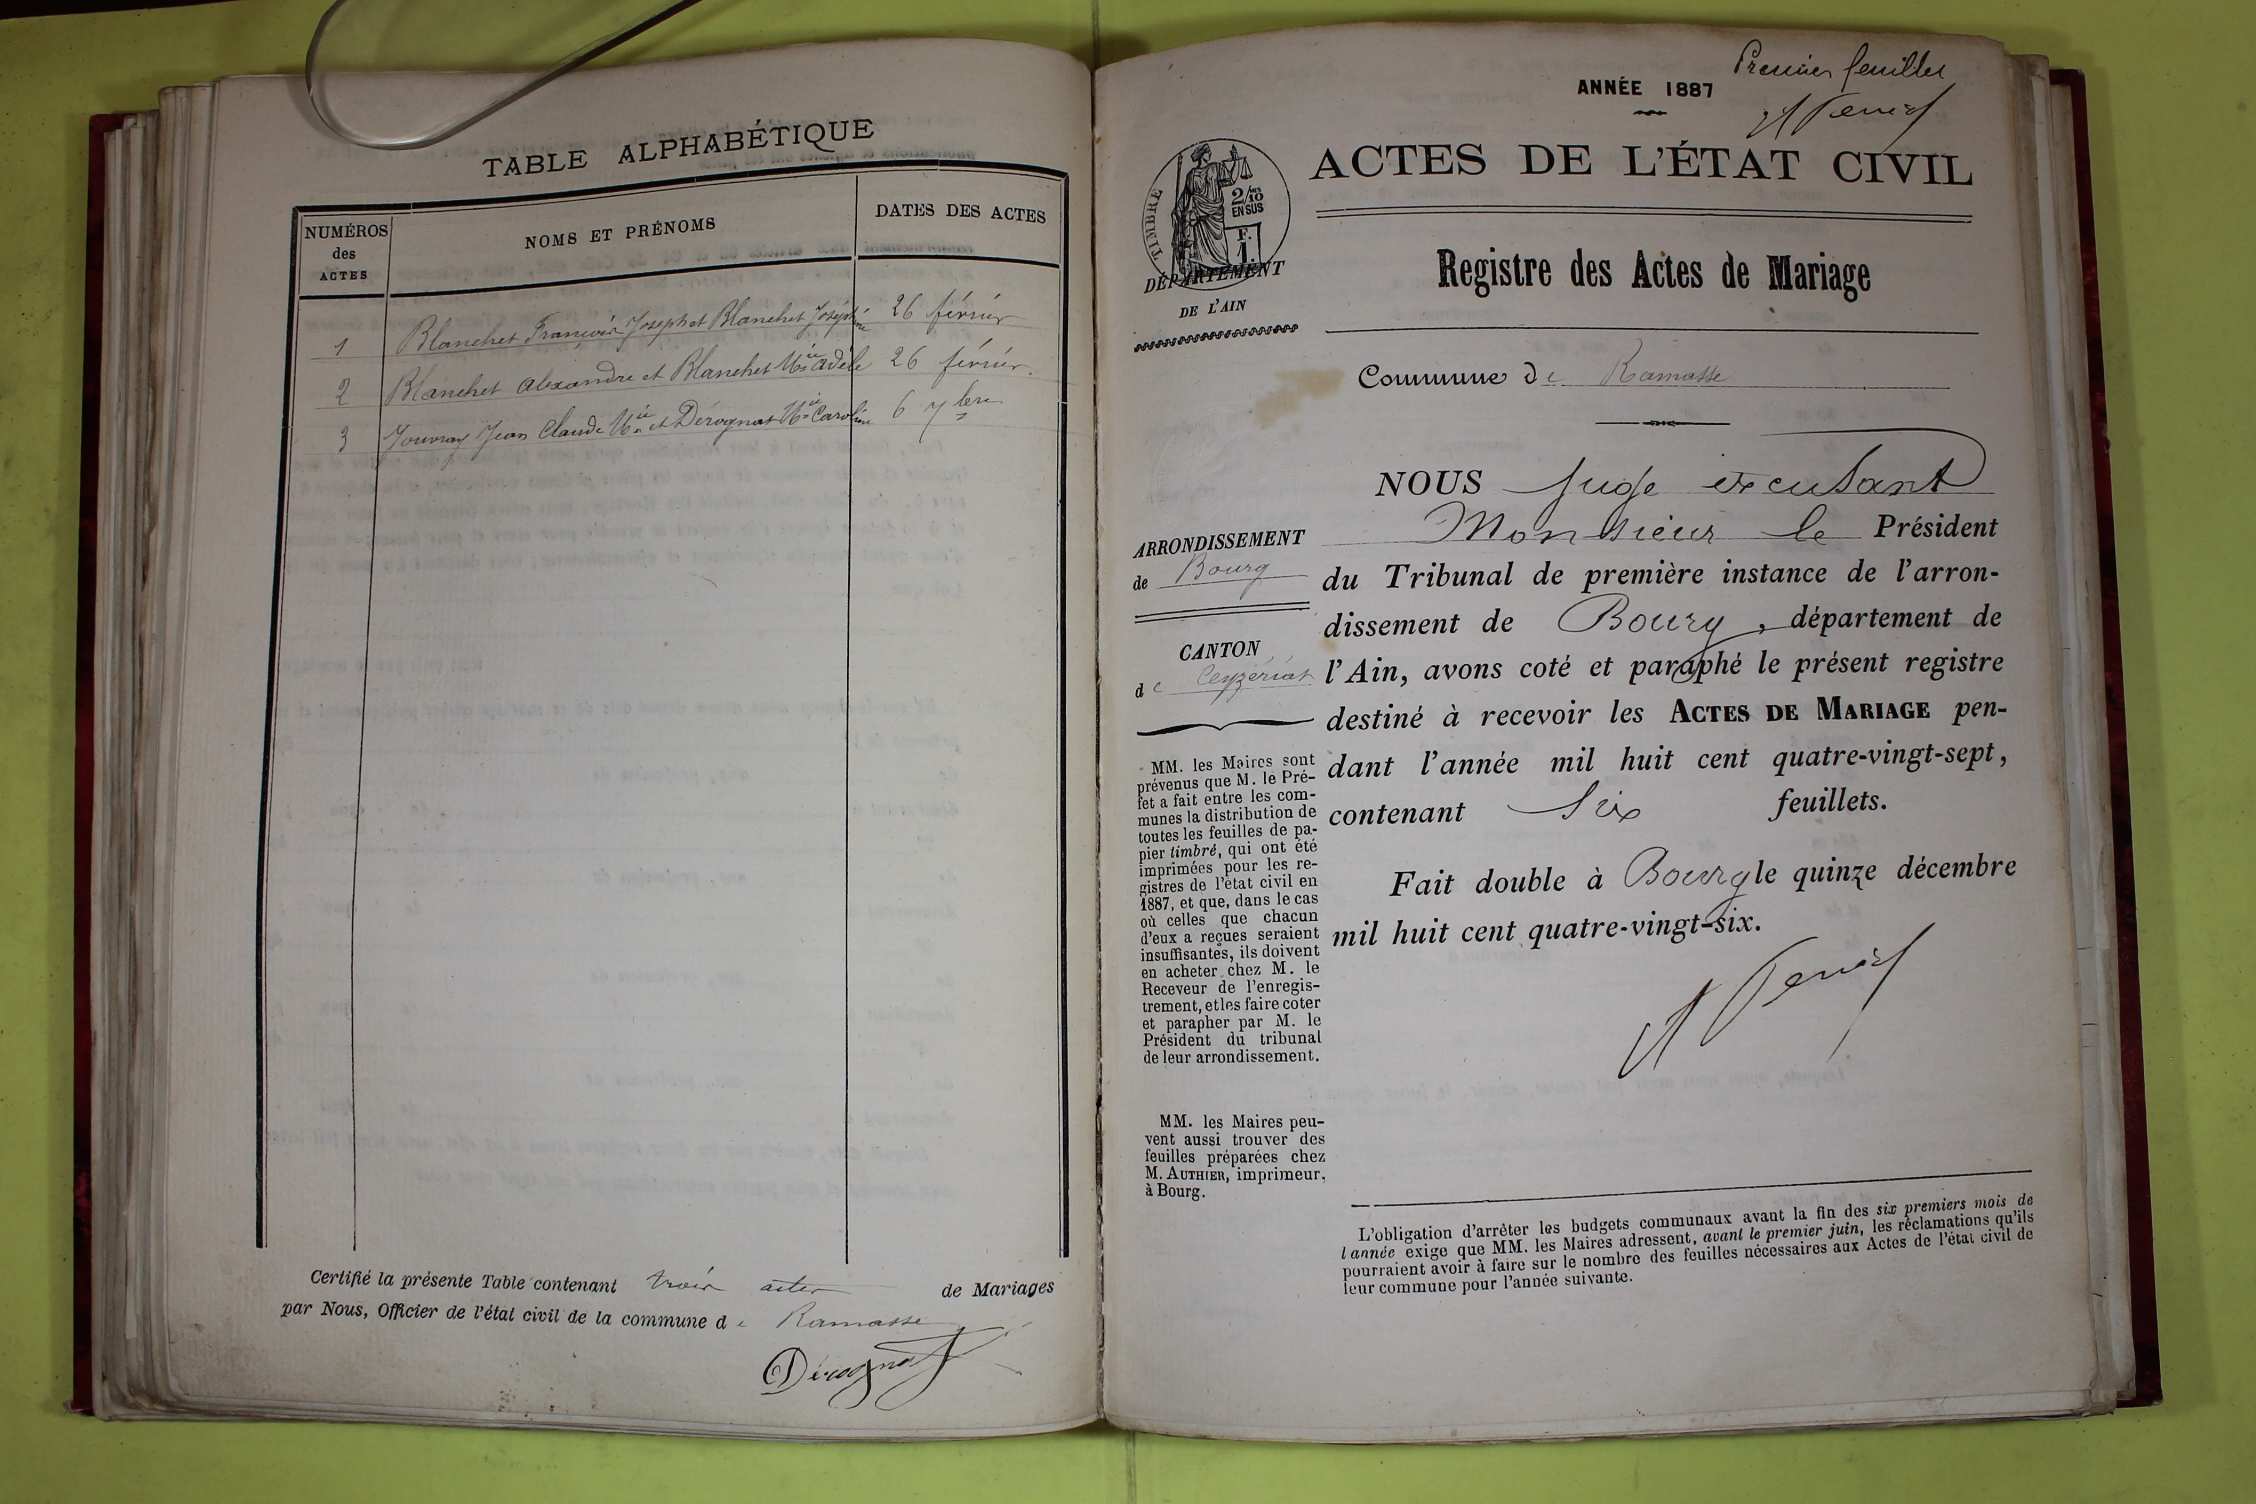 TABLE ALPHABÉTIQUE
NUMÉROS
des
ACTES
NOMS ET PRÉNOMS
DATES DES ACTES
1 Blanchet François Joseph et Blanchet Joséphine 26 février
2 Blanchet Alexandre et Blanchet Mie Adèle 26 février.
3 Jouvray Jean Claude Mie et Dérognat Mie Caroline 6 7bre
Certifié la présente Table contenant trois actes de Mariages
par Nous, Officier de l'état civil de la commune de Ramasse
Dérognat
Premier feuillet
ANNÉE 1887
ACTES DE L'ÉTAT CIVIL
TIMBRE
2/10
EN SUS
F.
1.
DÉPARTEMENT
DE L'AIN
Registre des Actes de Mariage
Commune de Ramasse
ARRONDISSEMENT
de Bourg
CANTON
de Ceyzériat
MM. les Maires sont
prévenus que M. le Pré-
fet a fait entre les com-
munes la distribution de
toutes les feuilles de pa-
pier timbré, qui ont été
imprimées pour les re-
gistres de l'état civil en
1887, et que, dans le cas
où celles que chacun
d'eux a reçues seraient
insuffisantes, ils doivent
en acheter chez M. le
Receveur de l'enregis-
trement, et les faire coter
et parapher par M. le
Président du tribunal
de leur arrondissement.
MM. les Maires peu-
vent aussi trouver des
feuilles préparées chez
M. AUTHIER, imprimeur,
à Bourg.
NOUS Juge excusant
Monsieur le Président
du Tribunal de première instance de l'arron-
dissement de Bourg, département de
l'Ain, avons coté et paraphé le présent registre
destiné à recevoir les ACTES DE MARIAGE pen-
dant l'année mil huit cent quatre-vingt-sept,
contenant Six feuillets.
Fait double à Bourg le quinze décembre
mil huit cent quatre-vingt-six.
L'obligation d'arrêter les budgets communaux avant la fin des six premiers mois de
l'année exige que MM. les Maires adressent, avant le premier juin, les réclamations qu'ils
pourraient avoir à faire sur le nombre des feuilles nécessaires aux Actes de l'état civil de
leur commune pour l'année suivante.